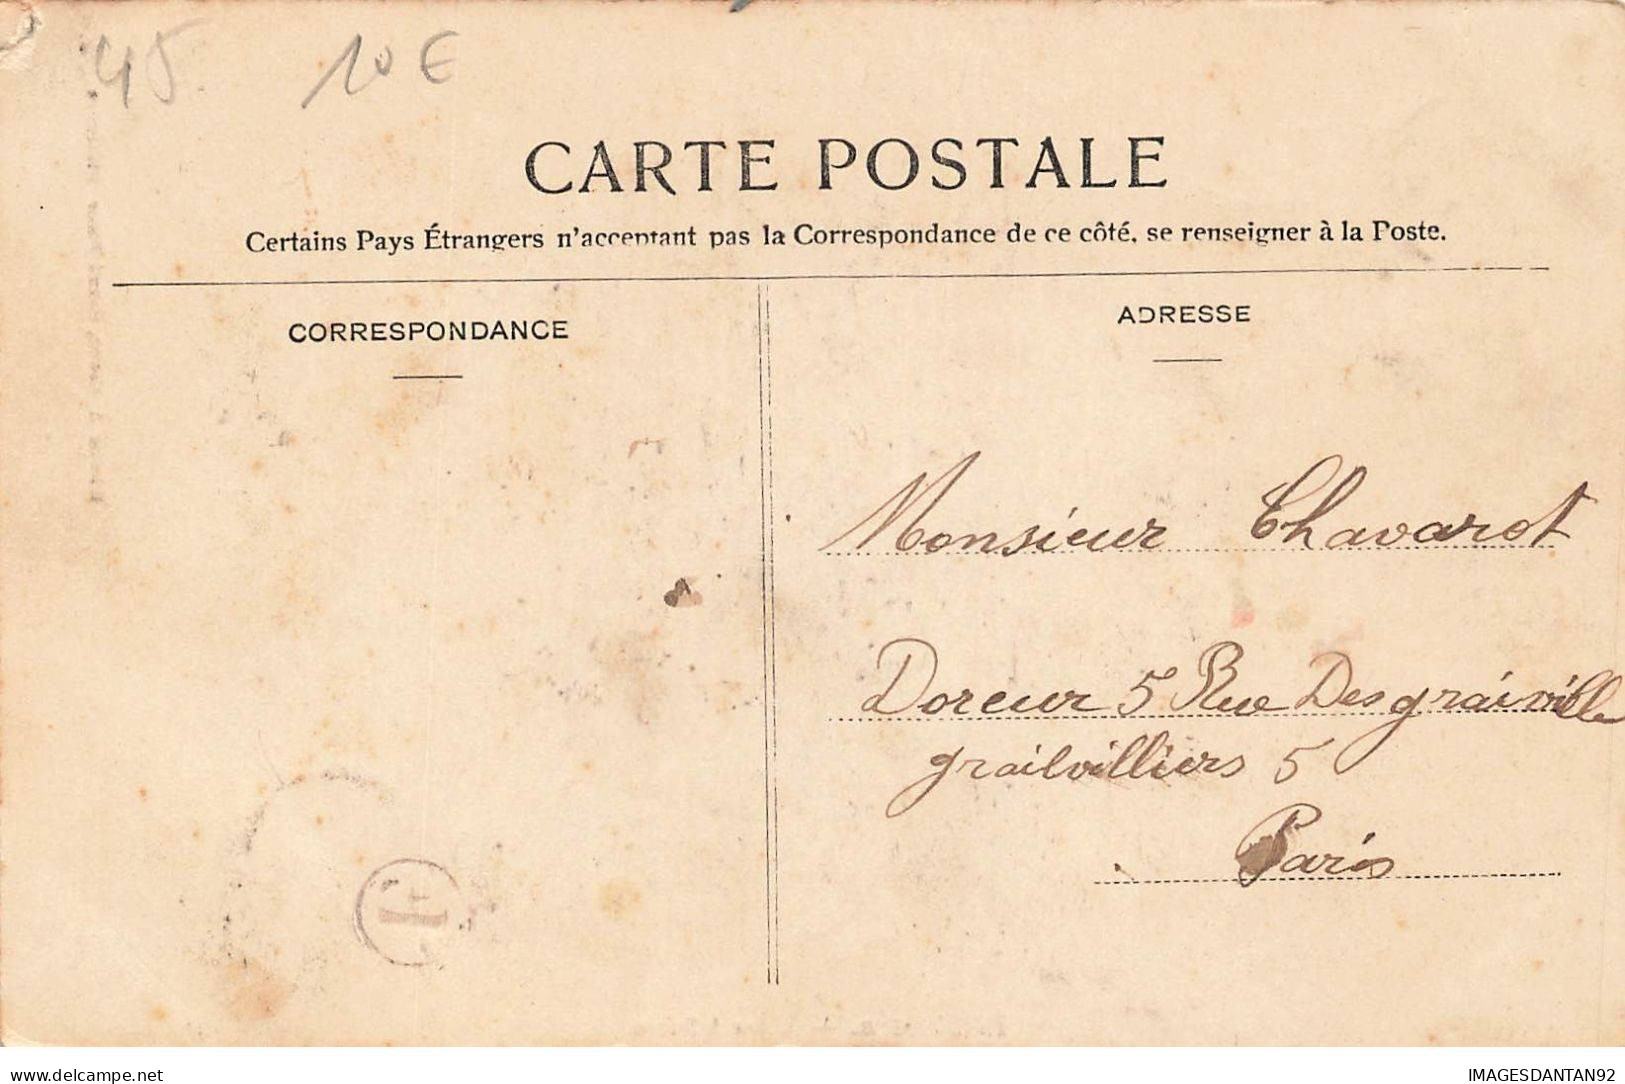 45 10 €
CARTE POSTALE
Certains Pays Étrangers n'acceptant pas la Correspondance de ce côté, se renseigner à la Poste.
CORRESPONDANCE
ADRESSE
Monsieur Chavarot
Doreur 5 Rue Desgrainville
grailvilliers 5
Paris
delcampe.net
IMAGESDANTAN92